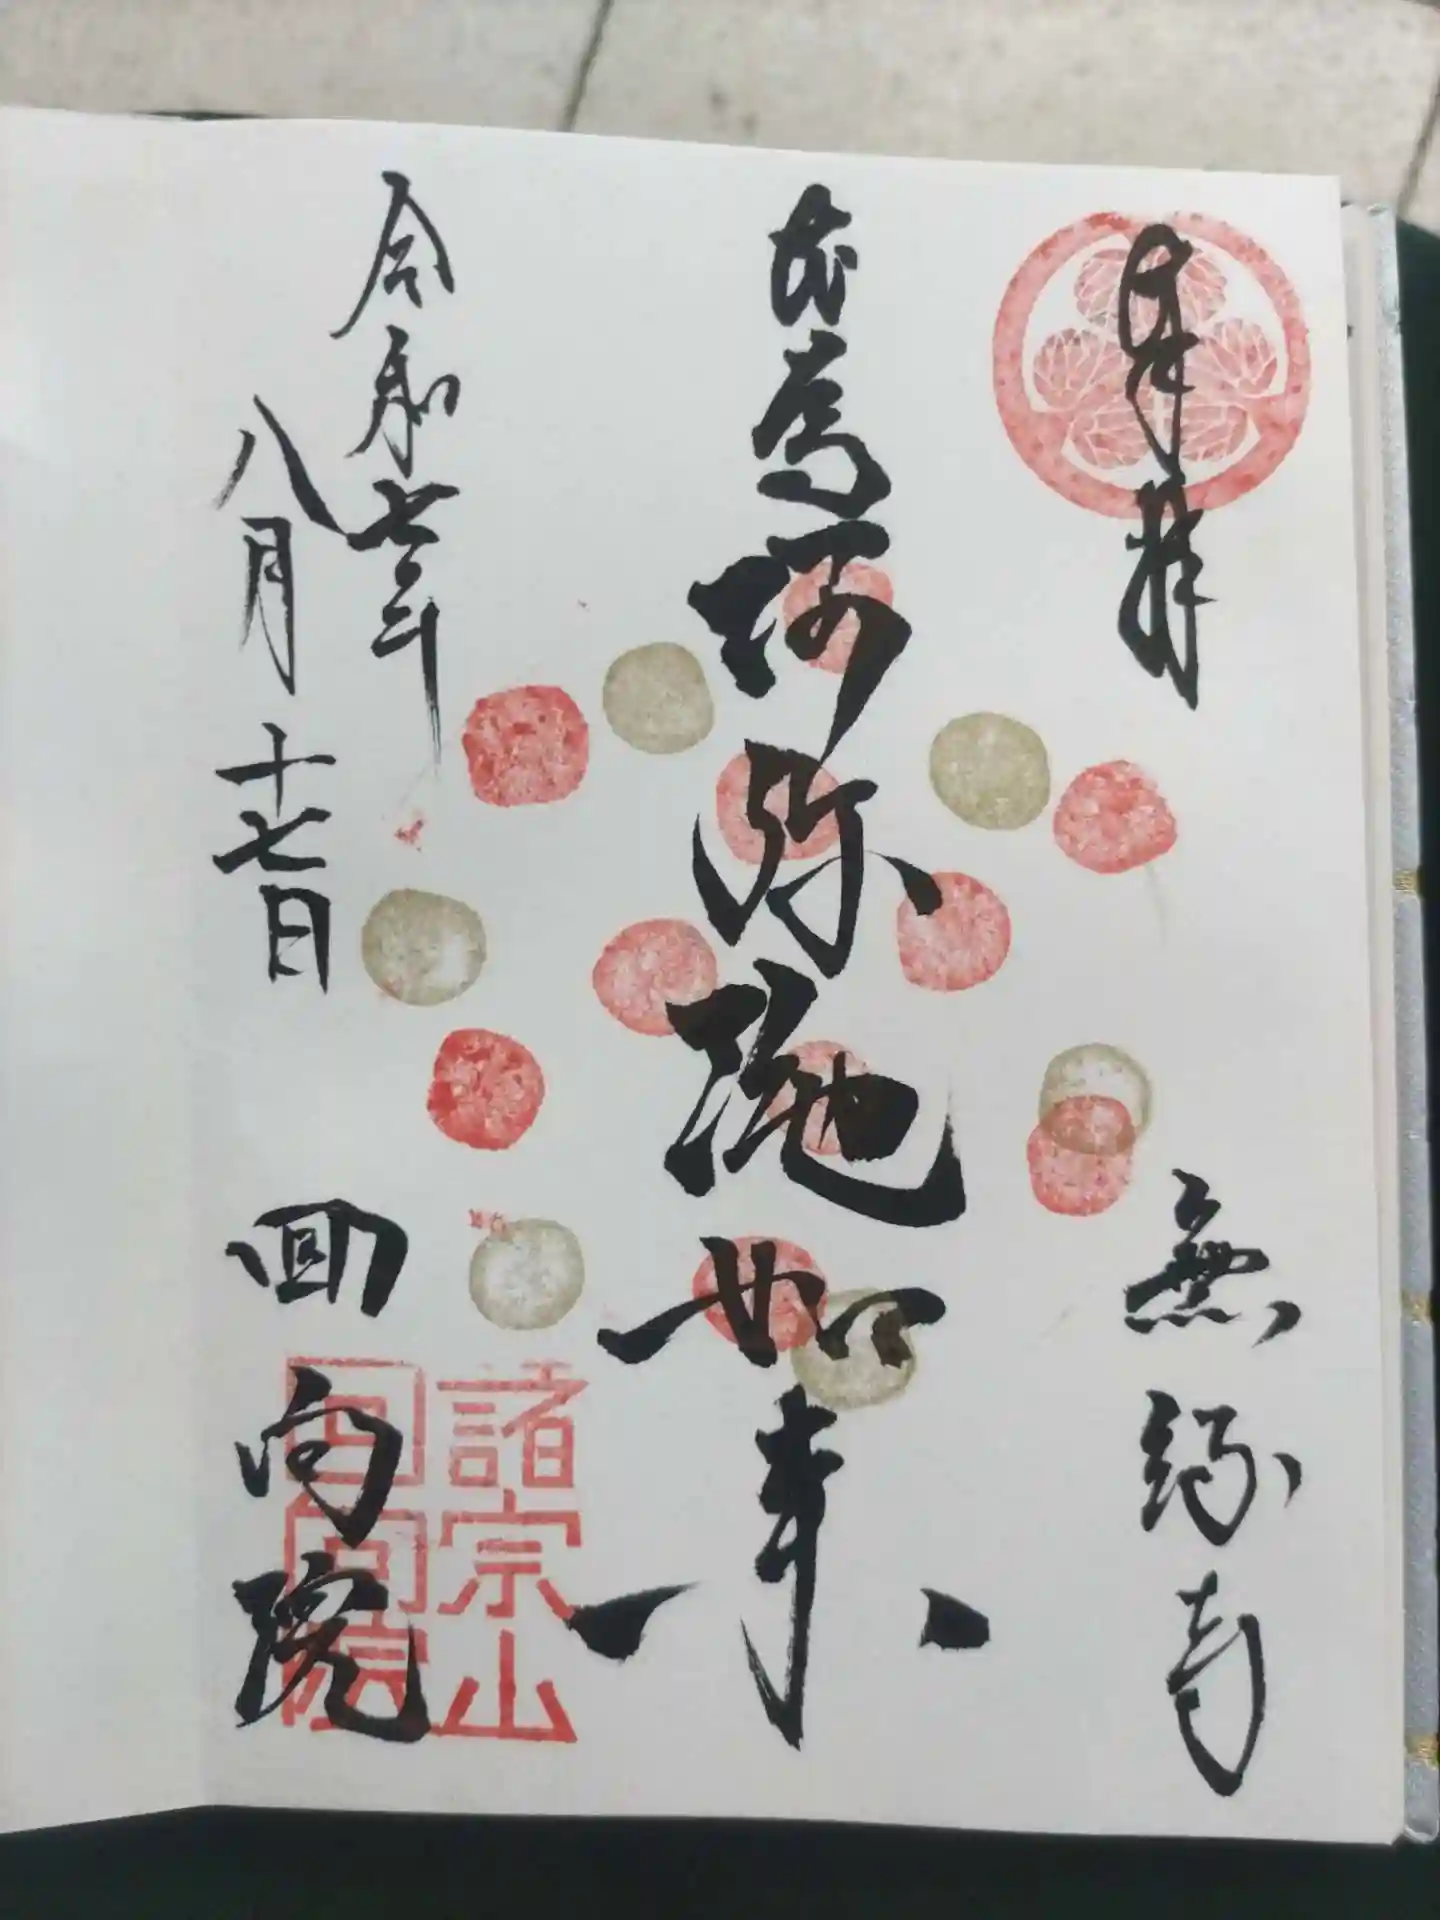 奉拝
無縁寺
阿弥陀如来
令和七年
八月十七日
回向院
諸宗山
回向院